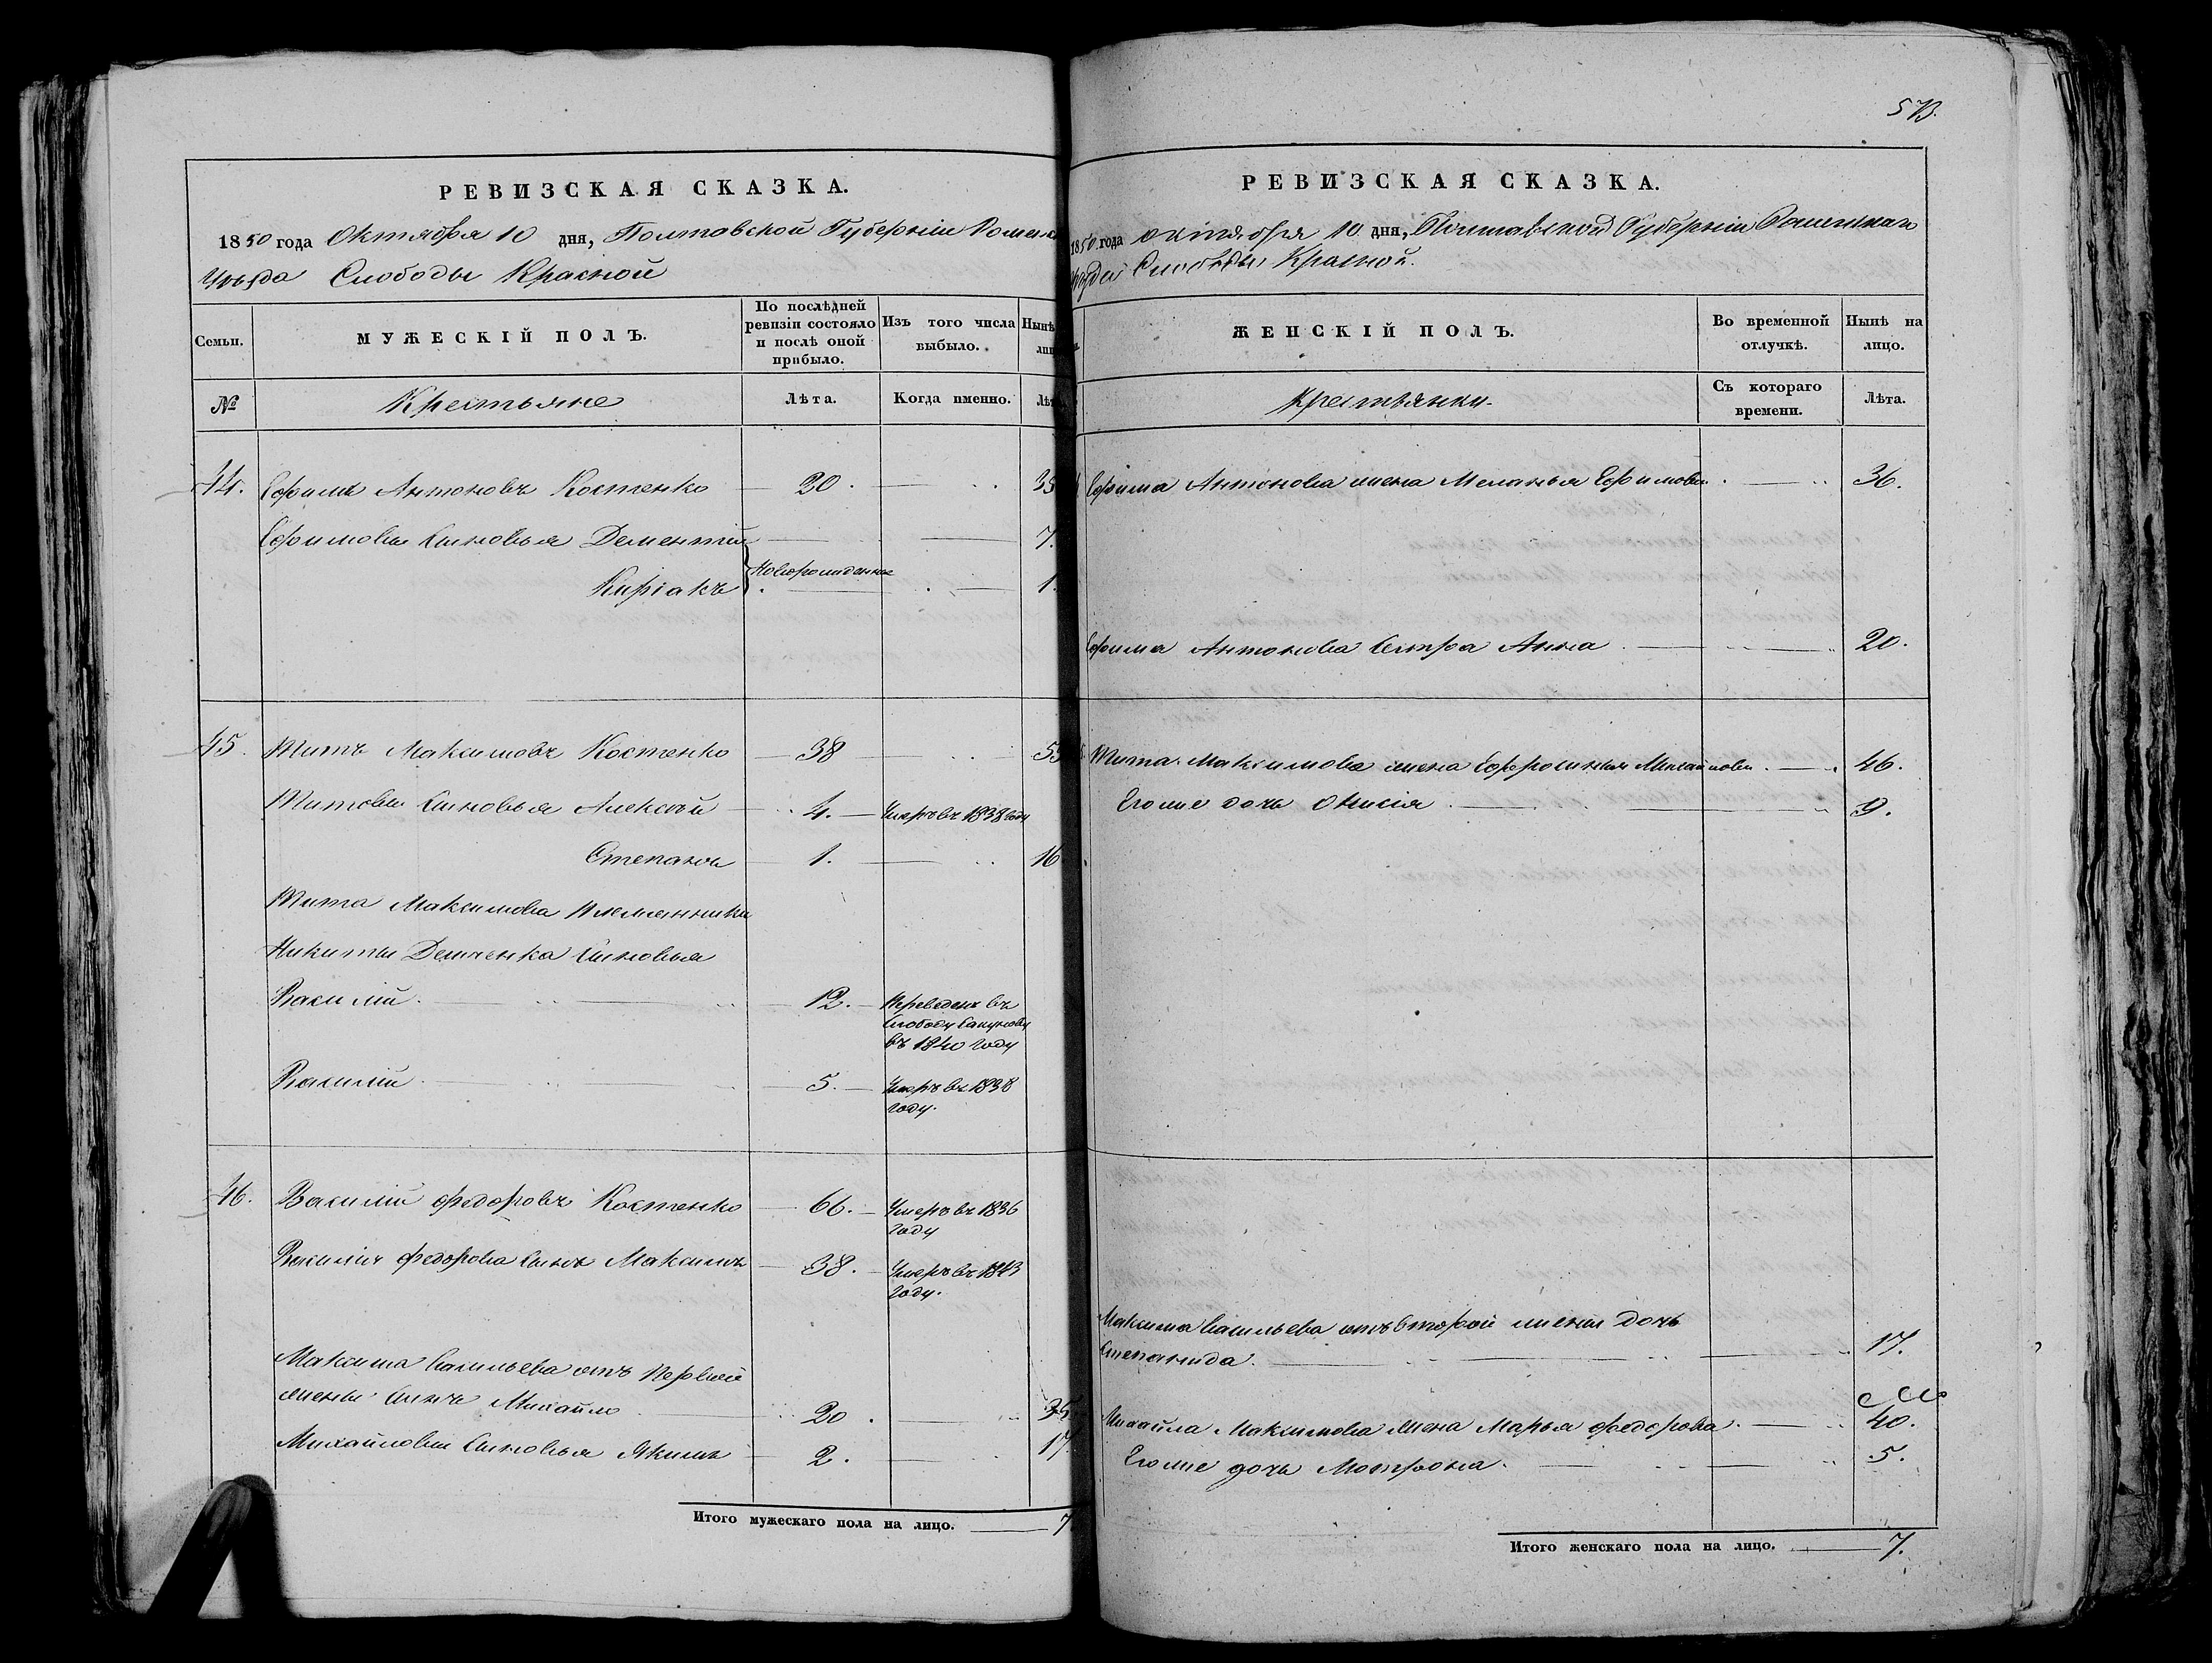 РЕВИЗСКАЯ СКАЗКА.
1850 года Октября 10 дня, Полтавской Губерніи
Уѣзда Слободы Красной
Семьи.
МУЖЕСКІЙ ПОЛЪ.
По послѣдней
ревизіи состояло
и послѣ оной
прибыло.
Изъ того числа
выбыло.
Нынѣ
№
Крестьяне
Лѣта.
Когда именно.
44. Ефимъ Антоновъ Костенко 20.
Ефимовы сыновья Дементій 7.
Новорожденные
Киріакъ 1.
45. Титъ Максимовъ Костенко 38
Титовы сыновья Алексѣй 4. Умеръ въ 1838 году
Степанъ 1. 16
Тита Максимова племянники
Никиты Демченка сыновья
Василій 12. Переведенъ въ
слободу
въ 1840 году
Василій 5. Умеръ въ 1838
году.
46. Василій Федоровъ Костенко 66. Умеръ въ 1836
году
Василія Федорова сынъ Максимъ 38. Умеръ въ 1843
году.
Максима Васильева отъ первой
жены сынъ Михайло 20. 35
Михайловы сыновья Якимъ 2. 17
Итого мужескаго пола на лицо. 7
573.
РЕВИЗСКАЯ СКАЗКА.
1850 года октября 10 дня, Полтавской Губерніи Роменскаго
Слободы Красной.
ЖЕНСКІЙ ПОЛЪ.
Во временной
отлучкѣ.
Нынѣ на
лицо.
Крестьянки.
Съ котораго
времени.
Лѣта.
Ефима Антонова жена Меланья Ефимова 36.
Ефима Антонова сестра Анна 20.
Тита Максимова жена Ефросинья Михайлова 46.
Его же дочь 9.
Максима Васильева отъ второй жены дочь
Степанида. 17.
Михайла Максимова жена Марья Федорова 40.
Его же дочь Мотрона. 5.
Итого женскаго пола на лицо. 7.